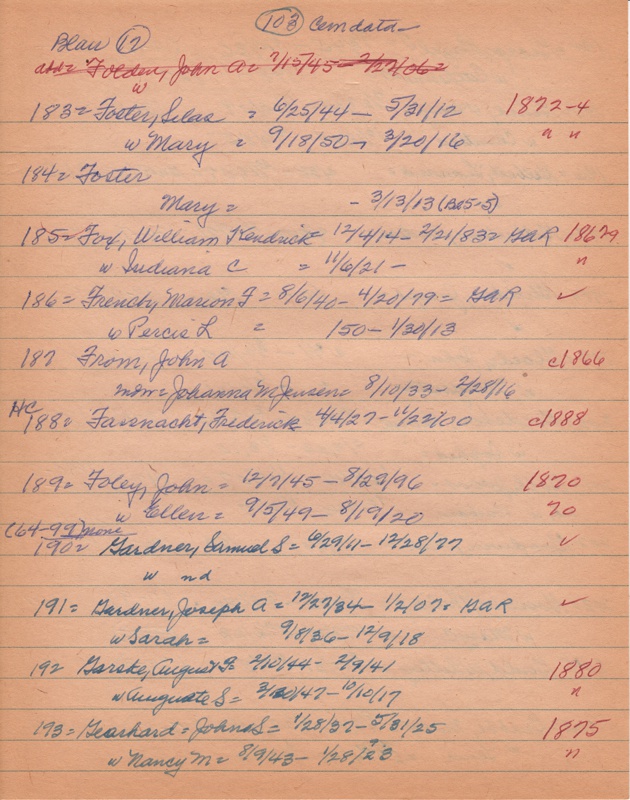 103 Cemdata
Blair 12
Folden, John A = 7/15/45 - 2/27/06 =
w
183 = Foster, Silas = 6/25/44 - 5/31/12 1872-4
w Mary = 9/18/50 - 3/20/16 " "
184 = Foster
Mary = - 3/13/13 (Ba5-5)
185 = Fox, William Kendrick 12/4/14 - 2/21/83 = GAR 1867
w Indiana C = 11/6/21 - "
186 = French, Marion F = 8/6/40 - 4/20/79 = GAR ✓
w Percis L = /50 - 1/30/13
187 From, John A c1866
mdm = Johanna M Jensen = 8/10/33 - 2/28/16
HC
188 = Fausnacht, Frederick 4/4/27 - 11/22/00 c1888
189 = Foley, John = 12/7/45 - 8/29/96 1870
w Ellen = 9/5/49 - 8/19/20 70
(64-99) none
190 = Gardner, Samuel S = 6/29/11 - 12/28/77 ✓
w nd
191 = Gardner, Joseph A = 12/27/34 - 1/2/07 = GAR ✓
w Sarah = 9/8/36 - 12/9/18
192 Garske, August F = 2/10/44 - 2/9/41 1880
w Auguste S = /47 - 10/10/17 "
193 = Gearhard = John S = 1/28/37 - 5/31/25 1875
w Nancy M = 8/9/43 - 1/28/23 "